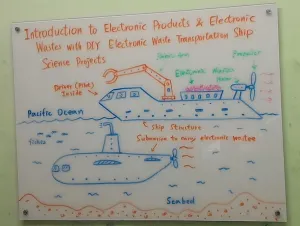 Introduction to Electronic Products & Electronic
Wastes with DIY Electronic Waste Transportation Ship
Science Projects
Propeller
Electronic Wastes
Driver (Man)
Inside
Pacific Ocean
Ship Structure
Submarine to carry electronic wastes
Fishes
Seabed